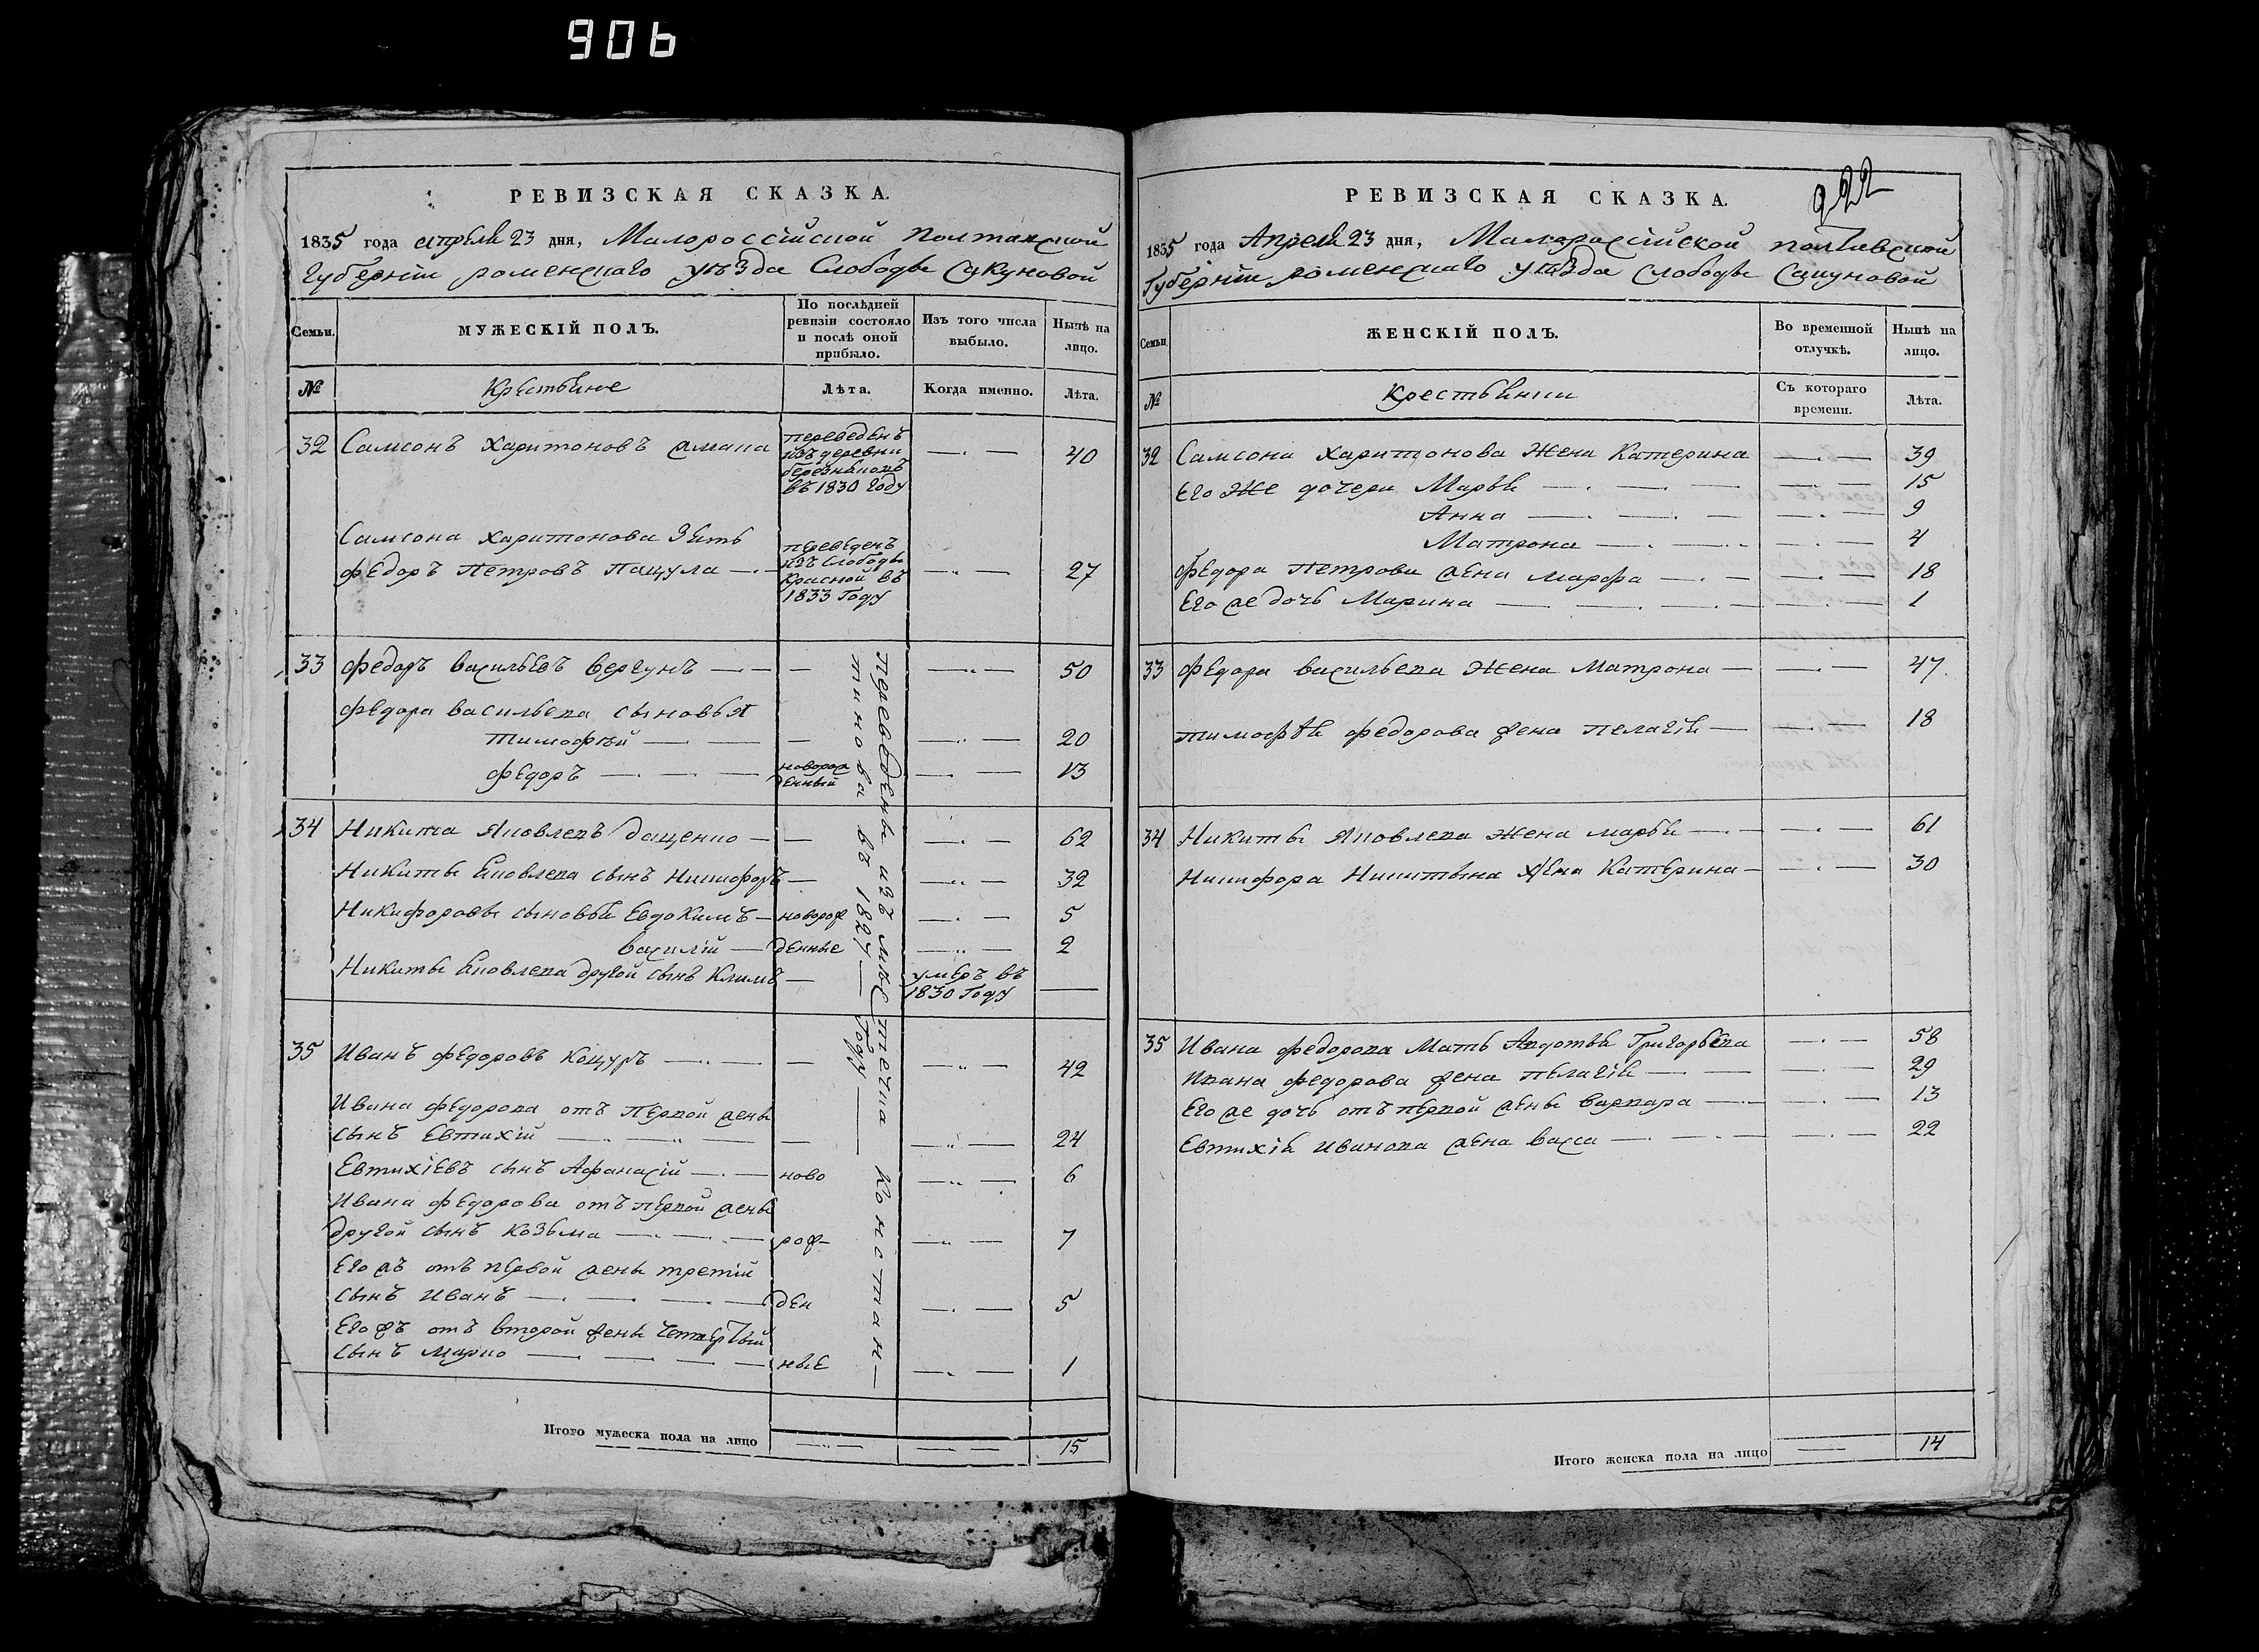 906
РЕВИЗСКАЯ СКАЗКА.
1835 года апреля 23 дня, Малороссійской Полтавской
Губерніи роменскаго уѣзда Слободы Сакуновой
Семьи.
МУЖЕСКІЙ ПОЛЪ.
По послѣдней
ревизіи состояло
и послѣ оной
прибыло.
Изъ того числа
выбыло.
Нынѣ на
лицо.
№
Крестьяне
Лѣта.
Когда именно.
Лѣта.
32 Самсонъ харитоновъ
переведенъ
изъ деревни
въ 1830 году
40
Самсона харитонова зять
федоръ петровъ Пацула
переведенъ
изъ Слободы
Красной въ
1833 Году
27
33 федоръ васильевъ вергунъ 50
федора васильева сыновья
тимофѣй 20
федоръ
новорож
денный
13
34 Никита Яковлевъ даценко 62
Никиты Яковлева сынъ Никифоръ 32
Никифоровы сыновья Евдокимъ новорож 5
василій денные 2
Никиты Яковлева другой сынъ Климъ
умеръ въ
1830 Году
35 Иванъ федоровъ Коцуръ 42
Ивана федорова отъ первой жены
сынъ Евтихій 24
Евтихіевъ сынъ Афанасій ново 6
Ивана федорова отъ первой жены
другой сынъ Козьма рож- 7
Его жъ отъ первой жены третій
сынъ Иванъ ден 5
Его жъ отъ второй жены четвертый
сынъ Марко ные 1
Переведены изъ местечка Констан-
тинова въ 1827 Году
Итого мужеска пола на лицо 15
922
РЕВИЗСКАЯ СКАЗКА.
1835 года Апреля 23 дня, Малороссійской полтавской
Губерніи роменскаго уѣзда слободы Сакуновой
Семьи
ЖЕНСКІЙ ПОЛЪ.
Во временной
отлучкѣ.
Нынѣ на
лицо.
№
Крестьянки
Съ котораго
времени.
Лѣта.
32 Самсона харитонова жена Катерина 39
Его же дочери Марья 15
Анна 9
Матрона 4
федора петрова жена марфа 18
Его же дочь Марина 1
33 федора васильева жена Матрона 47
тимофѣя федорова жена пелагія 18
34 Никиты Яковлева жена марья 61
Никифора Никитына жена Катерина 30
35 Ивана федорова Мать Авдотья Григорьева 58
Ивана федорова жена пелагія 29
Его же дочь отъ первой жены варвара 13
Евтихія Иванова жена васса 22
Итого женска пола на лицо 14